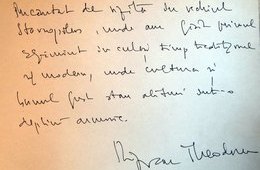 Încântat de vizita în vechiul
Stavropoleos, unde am găsit
în timp tradițional
și modern, unde cultura și
bunul gust stau alături într-o
deplină armonie.
Theodor